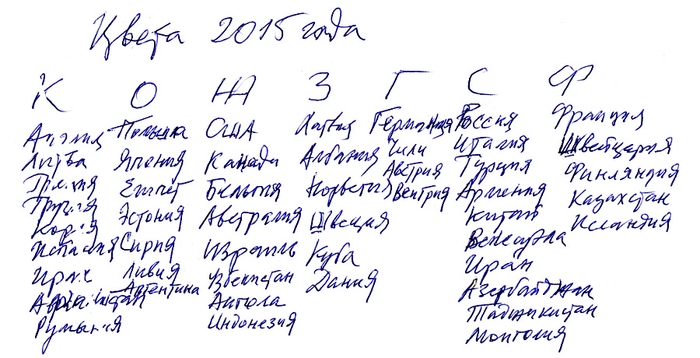 Цвета 2015 года
К О Ж З Г С Ф
Англия Польша США Латвия Германия Россия Франция
Литва Япония Канада Албания Чили Италия Швейцария
Греция Египет Бельгия Норвегия Австрия Турция Финляндия
Грузия Эстония Австралия Швеция Венгрия Армения Казахстан
Корея Сирия Израиль Куба Китай Исландия
Испания Ливия Узбекистан Дания Венесуэла
Ирак Аргентина Ангола Иран
Индонезия Азербайджан
Румыния Таджикистан
Монголия